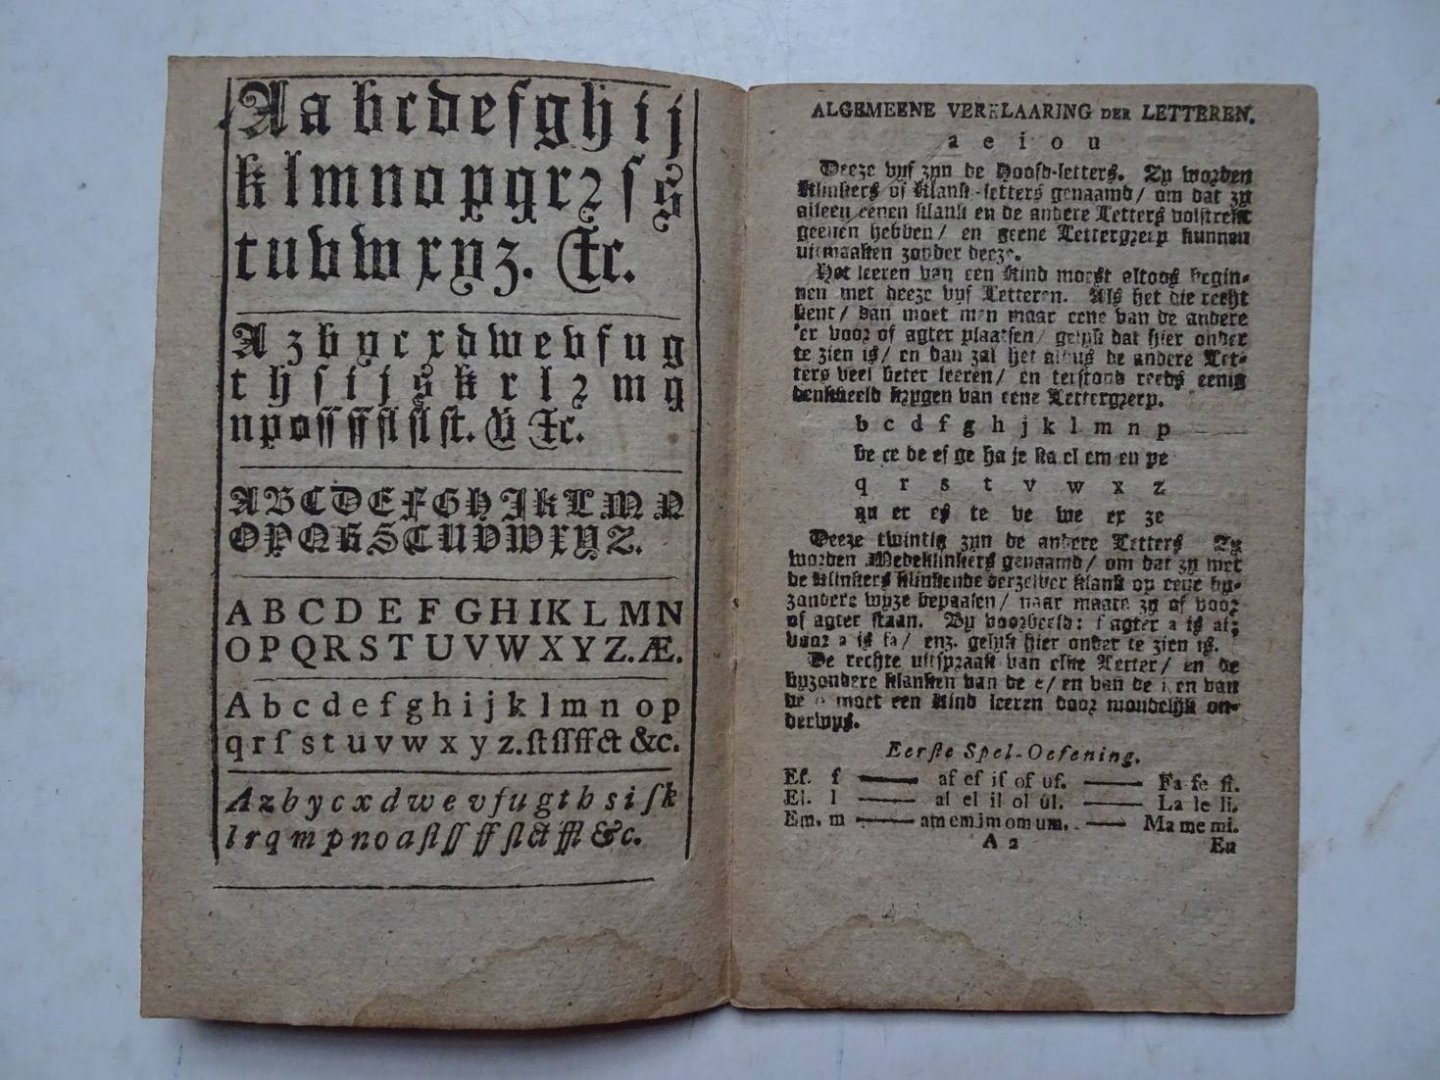 A a b c d e f g h i j
k l m n o p q r ꝛ ſ s
t u v w x y z. &c.
A z b y c x d w e v f u g
t h ſ i j s k r l ꝛ m q
n p o ſſ ff fl ſl ſt. & &c.
A B C D E F G H I K L M N
O P Q R S T U V W X Y Z.
A B C D E F G H I K L M N
O P Q R S T U V W X Y Z. Æ.
A b c d e f g h i j k l m n o p
q r ſ s t u v w x y z. ſt ſſ ff ct &c.
A z b y c x d w e v f u g t h s i ſ k
l r q m p n o a ſt ſſ ff ſl ct ffl &c.
ALGEMEENE VERKLAARING DER LETTEREN.
a e i o u
Deeze vyf zyn de Hoofd-letters. Zy worden
Klinkers of Klank-letters genaamd / om dat zy
alleen eenen klank en de andere Letters volstrekt
geenen hebben / en geene Lettergreep kunnen
uitmaaken zonder deeze.
Het leeren van een Kind moest altoos begin-
nen met deeze vyf Letteren. Als het die recht
kent / dan moet men maar eene van de andere
'er voor of agter plaatsen / gelyk dat hier onder
te zien is / en dan zal het aldus de andere Let-
ters veel beter leeren / en terstond reeds eenig
denkbeeld krygen van eene Lettergreep.
b c d f g h j k l m n p
be ce de ef ge ha je ka el em en pe
q r s t v w x z
qu er es te ve we ex ze
Deeze twintig zyn de andere Letters Zy
worden Medeklinkers genaamd / om dat zy met
de Klinkers klinkende derzelver klank op eene by-
zondere wyze bepaalen / naar maate zy of voor
of agter staan. By voorbeeld: f agter a is af;
voor a is fa / enz. gelyk hier onder te zien is.
De rechte uitspraak van elke Letter / en de
byzondere klanken van de e / en van de i en van
de o moet een Kind leeren door mondelyk on-
derwys.
Eerſte Spel-Oefening.
Ef. f —— af ef if of uf. —— Fa fe fi.
El. l —— al el il ol ul. —— La le li.
Em. m —— am em im om um. —— Ma me mi.
A 2
En